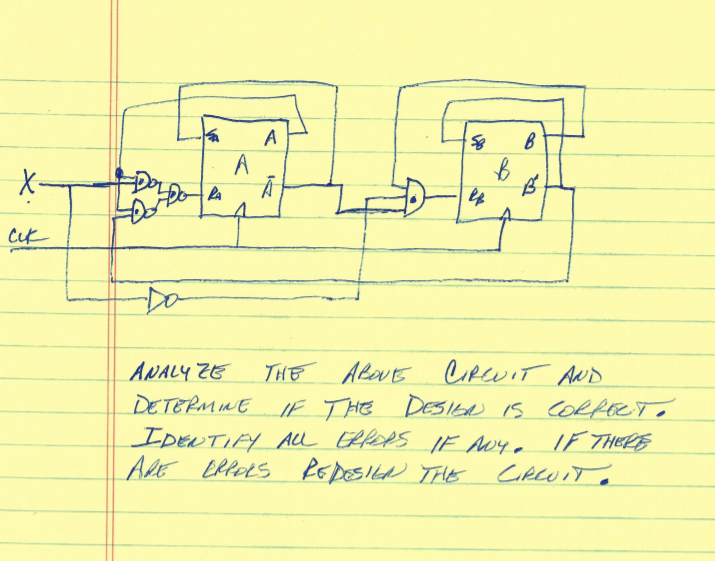 SA A SB B
A B
X RA Ā RB B̄
CLK
ANALYZE THE ABOVE CIRCUIT AND
DETERMINE IF THE DESIGN IS CORRECT.
IDENTIFY ALL ERRORS IF ANY. IF THERE
ARE ERRORS REDESIGN THE CIRCUIT.